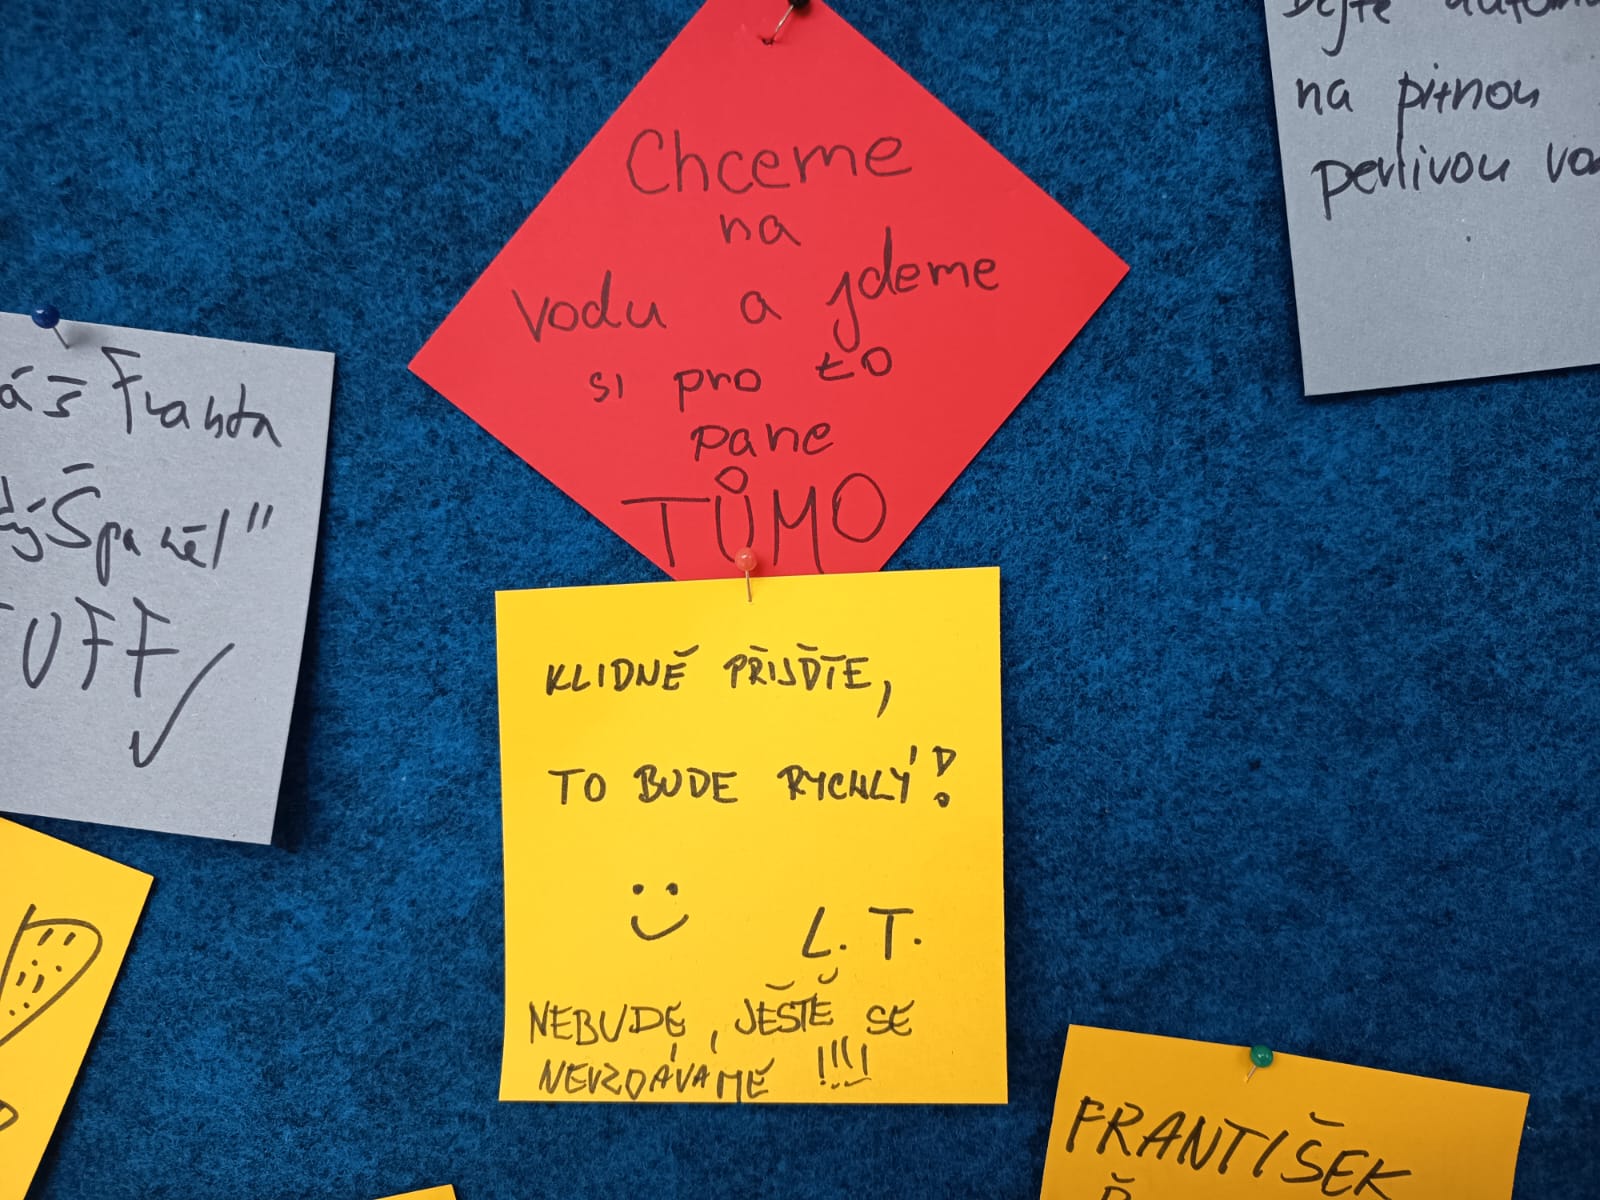 Chceme
na
vodu a jdeme
si pro to
pane
TŮMO
KLIDNĚ PŘIJĎTE,
TO BUDE RYCHLÝ!
L. T.
NEBUDE, JEŠTĚ SE
NEVZDÁVÁME !!!!
Dejte
na pitnou
perlivou
Franta
Španěl"
✓
FRANTIŠEK